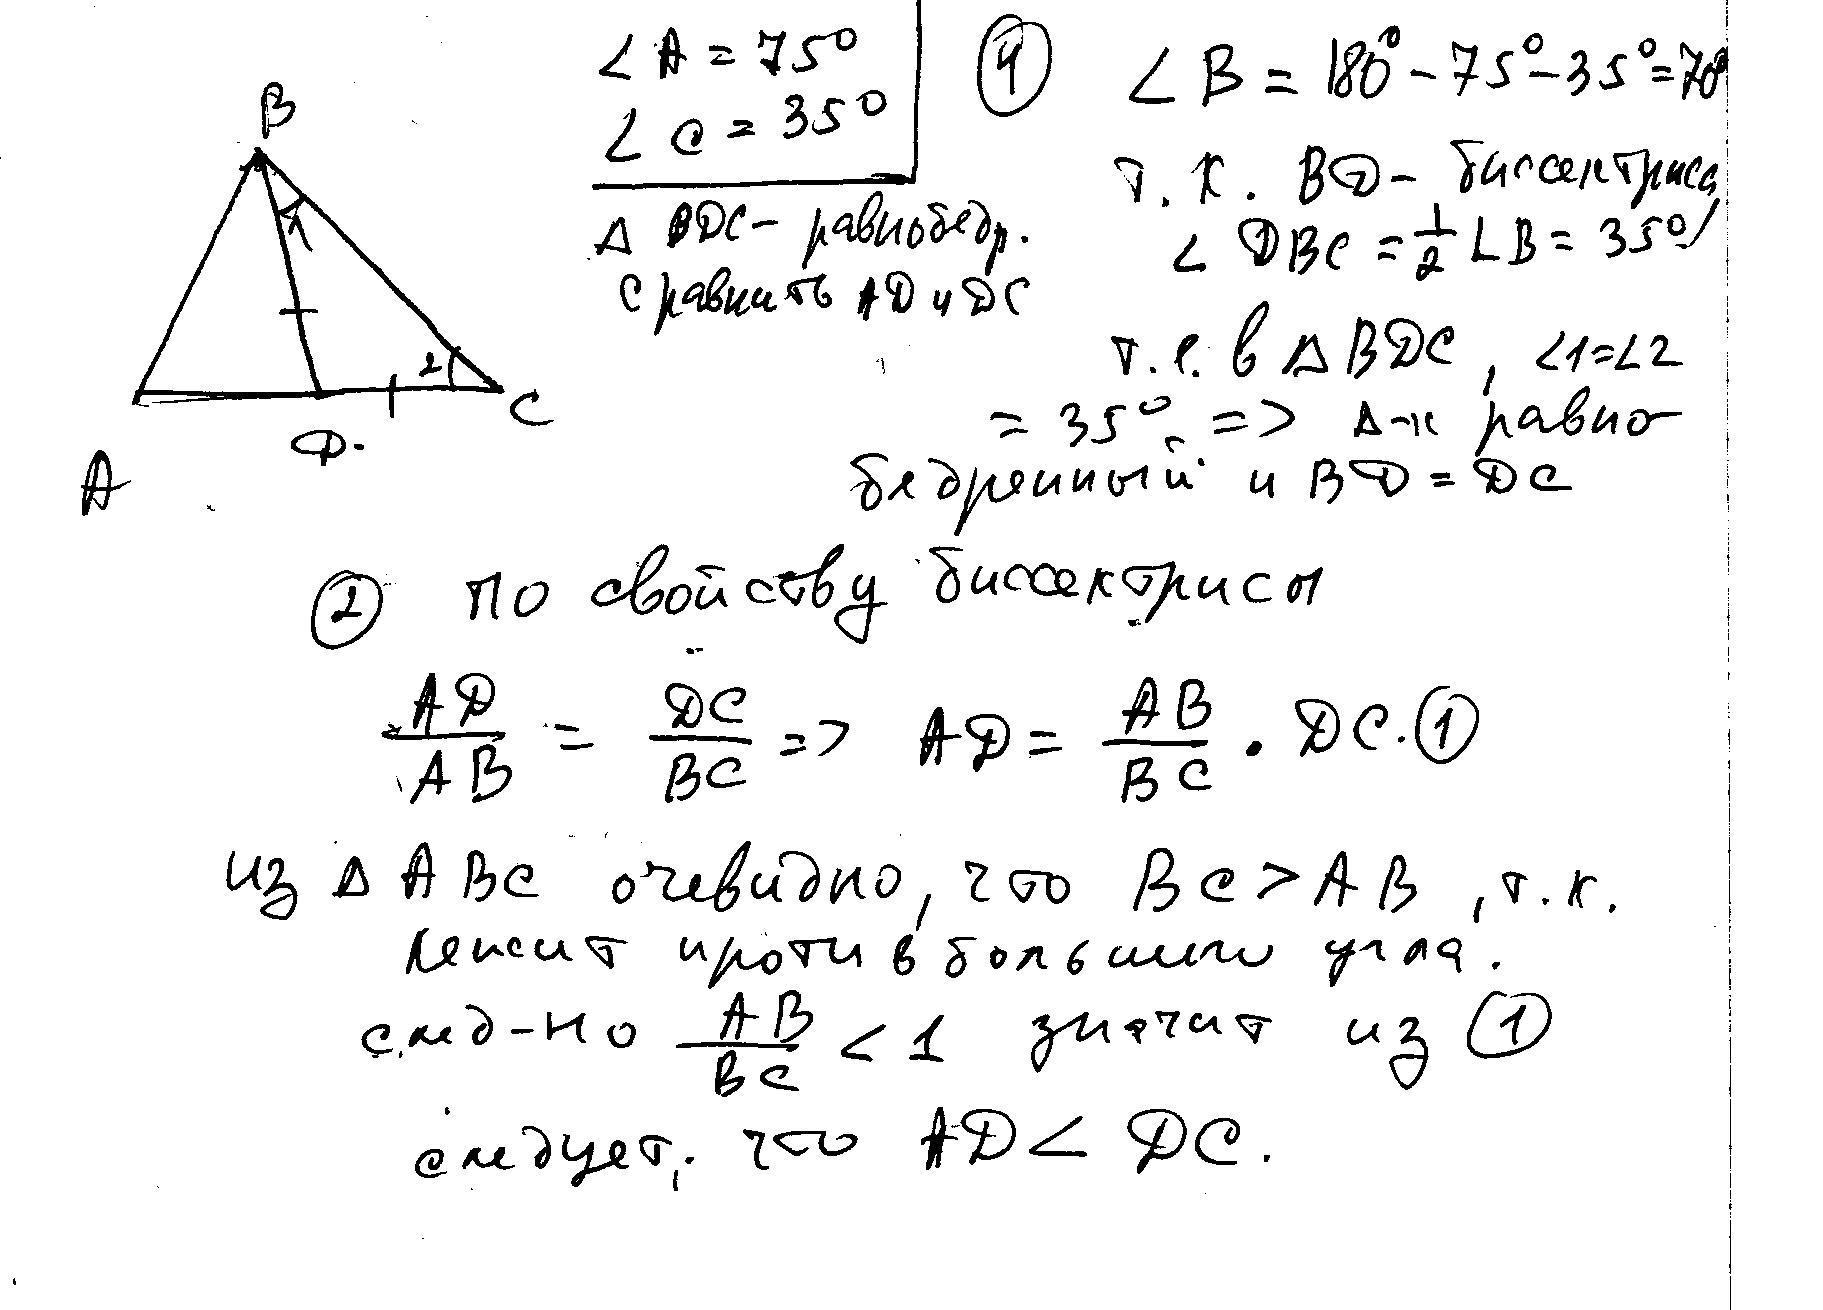 ∠A = 75°
∠C = 35°
Δ BDC - равнобедр.
сравнить AD и DC
B
1
2
A
D.
C
① ∠B = 180° - 75° - 35° = 70°
т.к. BD - биссектриса
∠DBC = 1/2 ∠B = 35°
т.е. в Δ BDC, ∠1 = ∠2
= 35° => Δ-к равно-
бедренный и BD = DC
② По свойству биссектрисы
AD/AB = DC/BC => AD = AB/BC · DC. ①
из Δ ABC очевидно, что BC > AB, т.к.
лежит против большего угла.
след-но AB/BC < 1 значит из ①
следует, что AD < DC.